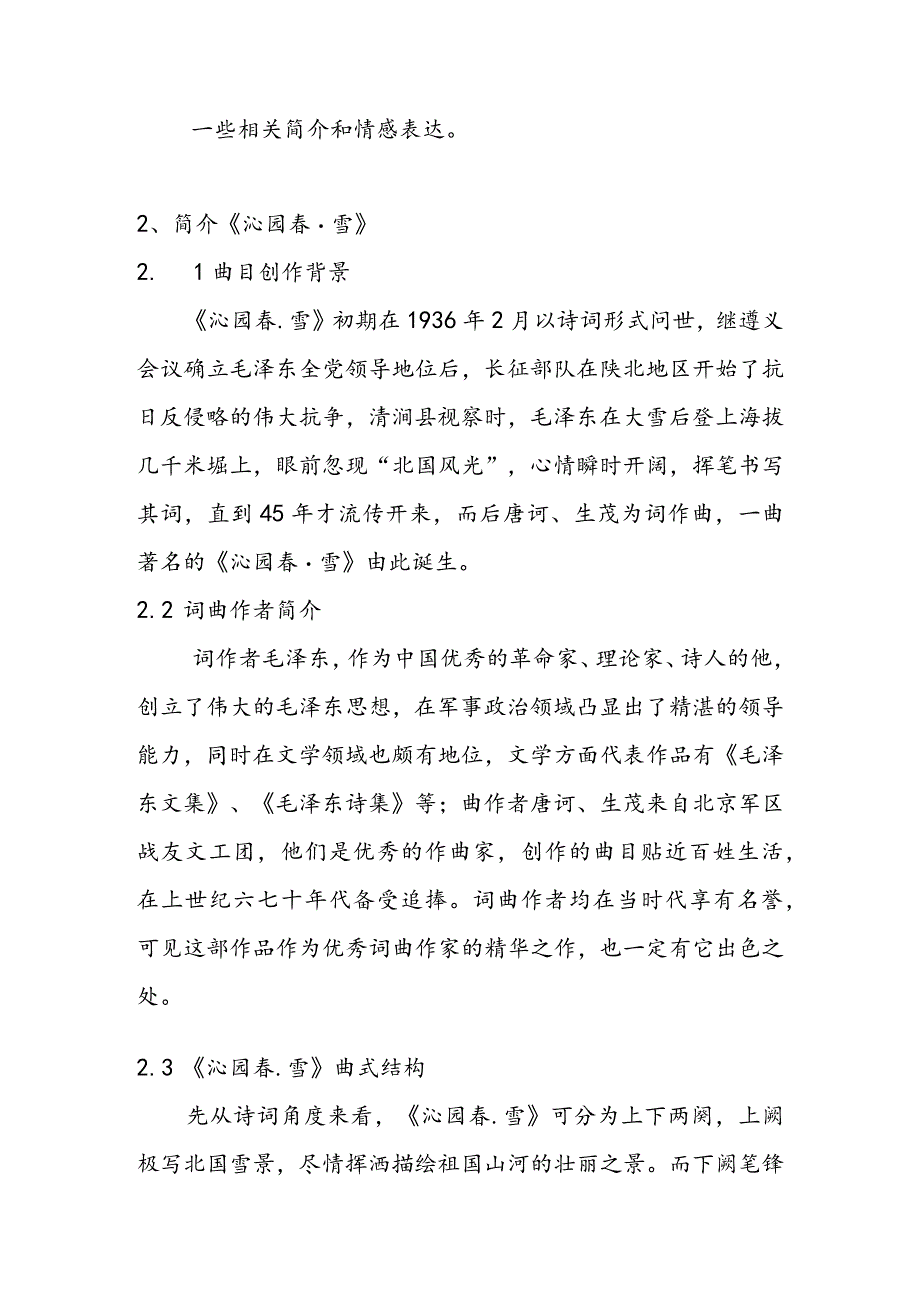 一些相关简介和情感表达。
2、简介《沁园春·雪》
2. 1曲目创作背景
《沁园春.雪》初期在1936年2月以诗词形式问世,继遵义
会议确立毛泽东全党领导地位后，长征部队在陕北地区开始了抗
日反侵略的伟大抗争，清涧县视察时，毛泽东在大雪后登上海拔
几千米堀上，眼前忽现“北国风光”，心情瞬时开阔，挥笔书写
其词，直到45年才流传开来，而后唐诃、生茂为词作曲，一曲
著名的《沁园春·雪》由此诞生。
2.2 词曲作者简介
词作者毛泽东,作为中国优秀的革命家、理论家、诗人的他，
创立了伟大的毛泽东思想，在军事政治领域凸显出了精湛的领导
能力，同时在文学领域也颇有地位，文学方面代表作品有《毛泽
东文集》、《毛泽东诗集》等；曲作者唐诃、生茂来自北京军区
战友文工团，他们是优秀的作曲家，创作的曲目贴近百姓生活，
在上世纪六七十年代备受追捧。词曲作者均在当时代享有名誉，
可见这部作品作为优秀词曲作家的精华之作，也一定有它出色之
处。
2.3 《沁园春.雪》曲式结构
先从诗词角度来看，《沁园春.雪》可分为上下两阕，上阙
极写北国雪景，尽情挥洒描绘祖国山河的壮丽之景。而下阙笔锋